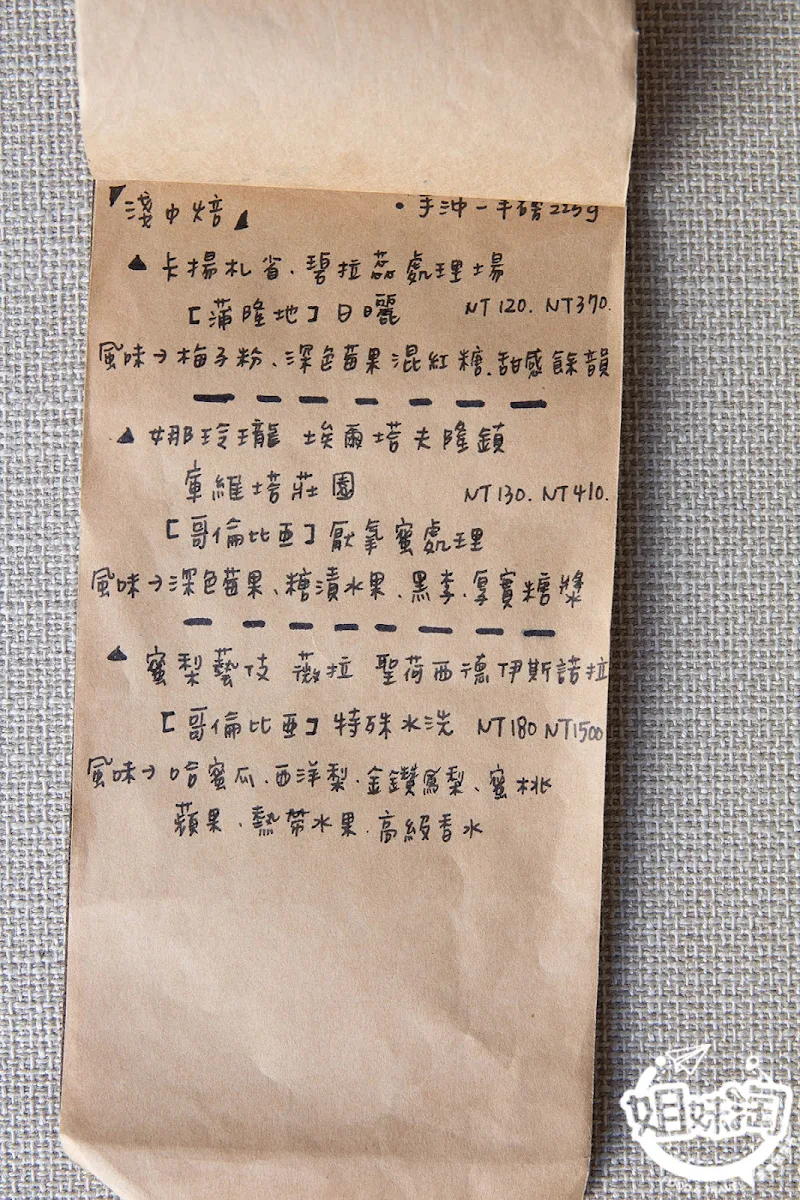 淺中焙 • 手沖一半磅225g
▲ 卡揚札省.碧拉蕊處理場
[蒲隆地] 日曬 NT120. NT370.
風味→梅子粉、深色莓果混紅糖.甜感餘韻
▲ 娜玲瓏 埃爾塔夫隆鎮
庫維塔莊園 NT130. NT410.
[哥倫比亞] 厭氧蜜處理
風味→深色莓果、糖漬水果.黑李.厚實糖漿
▲ 蜜梨藝伎 薇拉 聖荷西德伊斯諾拉
[哥倫比亞] 特殊水洗 NT180 NT1500
風味→哈蜜瓜.西洋梨.金鑽鳳梨、蜜桃
蘋果.熱帶水果.高級香水
姐妹淘